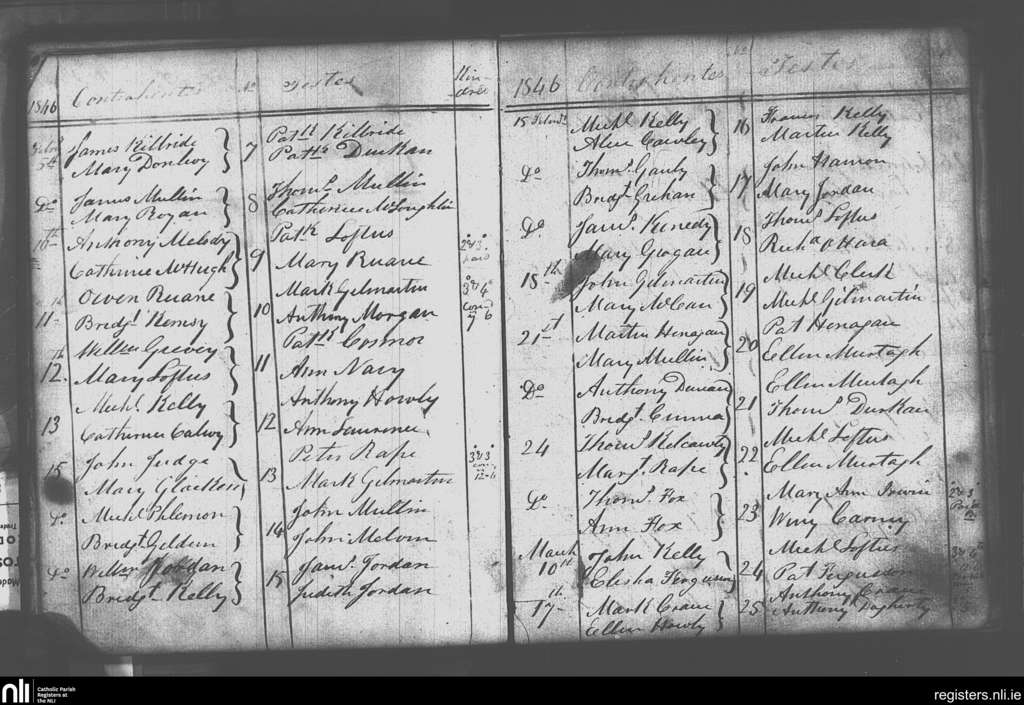 1846 Contrahentes No Testes Kin-dree
5th James Kilbride 7 Patk Kilbride
Mary Donlevy Pattk Durkan
Do James Mullin 8 Thoms Mullin
Mary Rogan Catherine McLoughlin
10th Anthony Melody 9 Patk Loftus 2o & 3o
Catherine McHugh Mary Ruane
11th Owen Ruane 10 Mark Gilmartin 3o & 4o
Bridgt Anthony Morgan
12th Willm Greevey 11 Pattk Connor
Mary Loftus Ann Nary
13 Michl Kelly 12 Anthony Howly
Catherine Calwey Ann Lawrence
15 John Judge 13 Peter Rape 3o & 3o
Mary Glacken Mark Gilmartin
Do Michl Philemon 14 John Mullin
Bridgt Geldun John Melvin
Do Willm Jordan 15 Jams Jordan
Bridgt Kelly Judith Jordan
1846 Contrahentes No Testes
15 Michl Kelly 16 Francis Kelly
Alice Cawley Martin Kelly
Do Thoms Gauly 17 John Hannon
Bridgt Grehan Mary Jordan
Do Jams Kenedy 18 Thoms Loftus
Mary Grogan Richd O Hara
18th John Gilmartin 19 Michl Clerk
Mary McCan Michl Gilmartin
21st Martin Henagan 20 Pat Henagan
Mary Mullin Ellen Murtagh
Do Anthony 21 Ellen Murtagh
Bridgt Thoms Durkan
24 Thoms Kilcawly 22 Michl Loftus
Margt Rape Ellen Murtagh
Do Thoms Fox 23 Mary Ann Irwin 2o & 3o
Ann Flox Winy Carney
March 10th John Kelly 24 Michl Loftus 3 & 4
Elesha Ferguson Pat Ferguson
17th Mark Crane 25 Anthony Crane
Ellen Howly Anthony Dogherty
nli Catholic Parish
Registers at
the NLI
registers.nli.ie